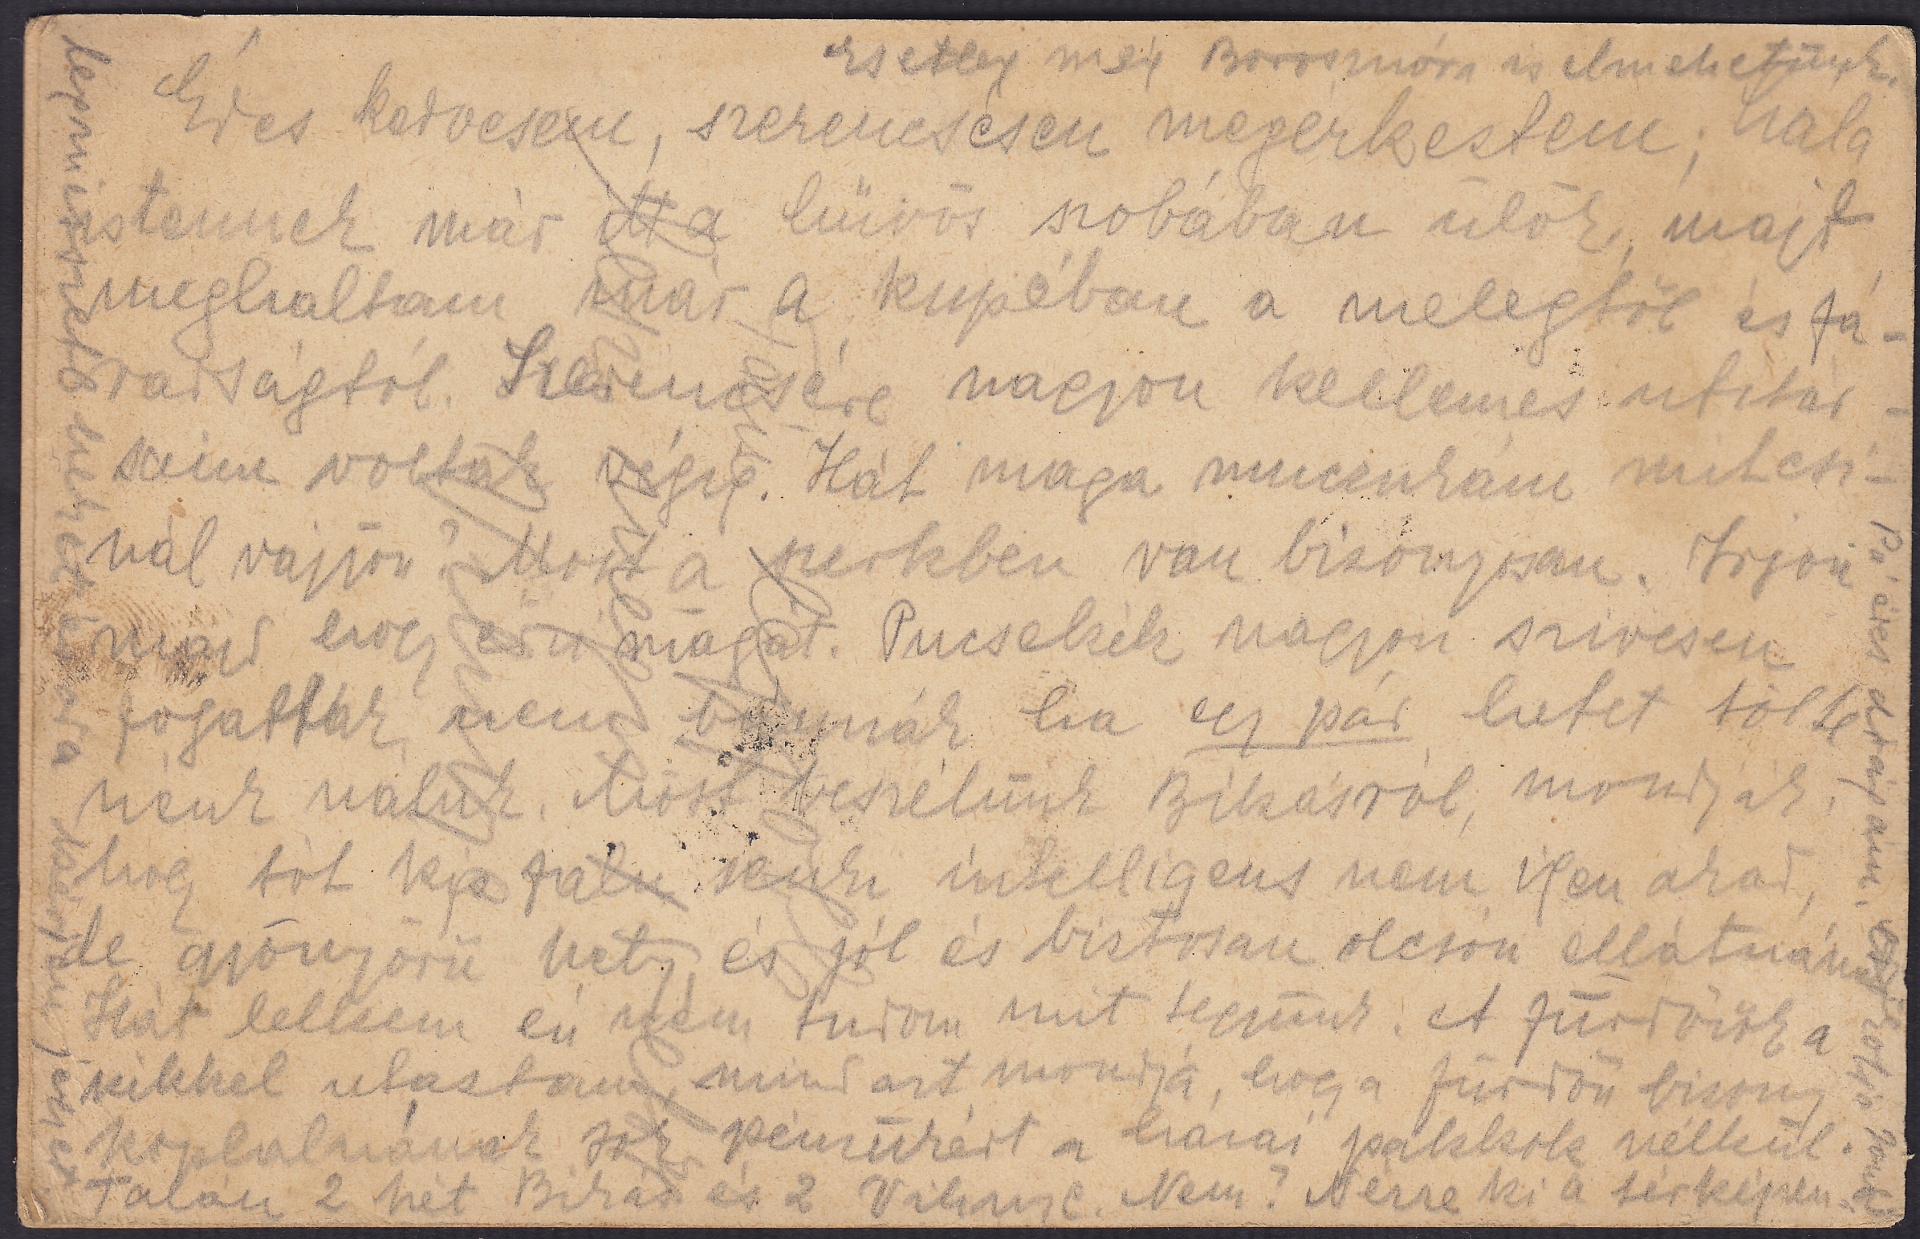 esetleg még Borosznóra is elmehetünk.
Édes kedvesem, szerencsésen megérkestem; hála
istennek már itt a hüvös szobában ülök, majd
meghaltam már a kupéban a melegtől és fá-
radságtól. Szerencsére nagyon kellemes utitár-
saim voltak végig. Hát maga muczukám mitcsi-
nál vajjon? Most a parkben van bisonyosan. Irjon
majd hogy érzi magát. Pucsekék nagyon szivesen
fogattak, nem bánnák ha egy pár hetet tölte
nénk náluk. Most beszélünk Bikásról, mondják,
hogy tót kis falu senki intelligens nem igen akad,
de gyönyörü hely, és jól és biztosan olcsón ellátnának
Hát lelkem én nem tudom mit tegyünk. A fürdőzök a
kikkel utastam, mind azt mondja, hogy a fürdőn bisony
koplalnánk sok pénzünkért a hazai pakkok nélkül.
Talán 2 hét Bikás és 2 Vihnye. Nem? Nézze ki a térképen
Pá édes drágám,